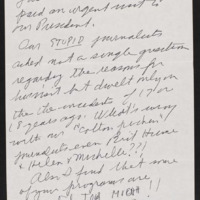 paid an urgent visit to
our President.
Our STUPID journalists
asked not a single question
regarding the reasons for
his visit but dwelt only on
the incidents of 17 or
18 years ago. What's wrong
with our "cotton pickin'"
journalists even Brit Hume
& Helen & Michelle???
Also I find that some
of your programs are
TOO MUCH!!